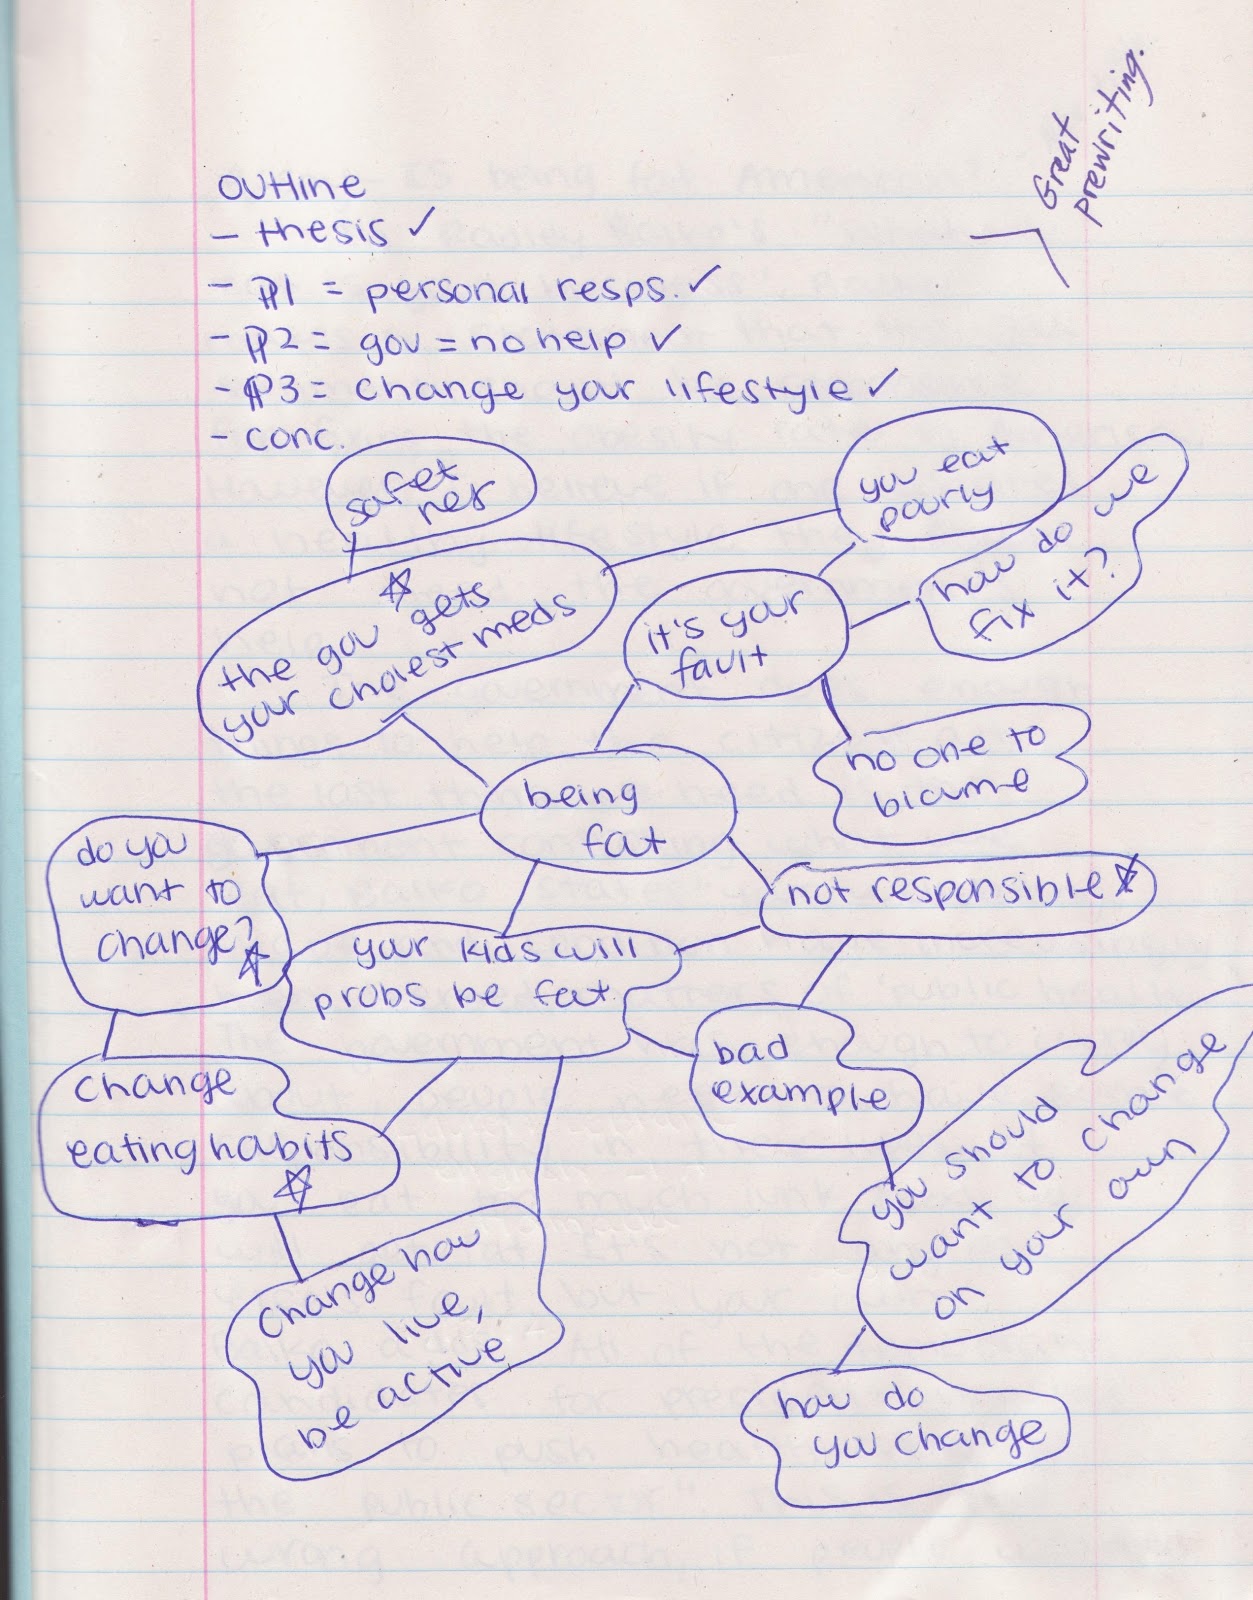 Great
prewriting.
OUTline
- thesis ✓
- ¶1 = personal resps. ✓
- ¶2 = gov = no help ✓
- ¶3 = change your lifestyle ✓
- conc.
safet
net
you eat
pourly
how do we
fix it?
☆
the gov gets
your cholest meds
it's your
fault
no one to
blame
being
fat
do you
want to
change?
☆
not responsible ☆
your kids will
probs be fat
bad
example
change
eating habits
☆
you should
want to change
on your own
change how
you live,
be active
how do
you change